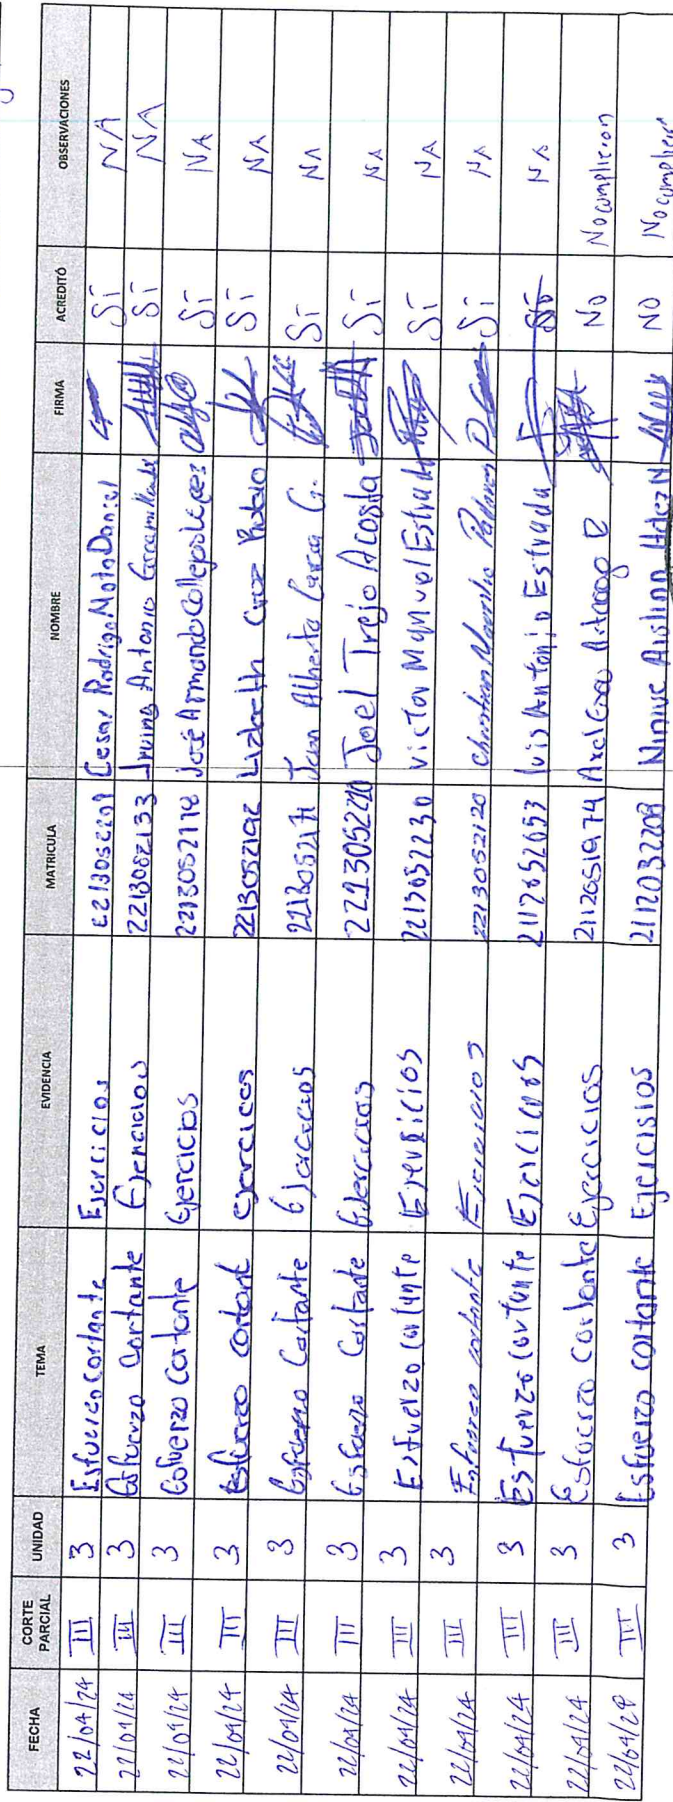 FECHA CORTE PARCIAL UNIDAD TEMA EVIDENCIA MATRICULA NOMBRE FIRMA ACREDITÓ OBSERVACIONES
22/04/24 III 3 Esfuerzo Cortante Ejercicios 2213052209 Cesar Rodrigo Mota Daniel Sí NA
22/04/24 III 3 Esfuerzo Cortante Ejercicios 2213052133 Irving Antonio Sí NA
22/04/24 III 3 Esfuerzo Cortante Ejercicios 2213052118 José Armando Sí NA
22/04/24 III 3 Esfuerzo Cortant Ejercicos 2213052192 Lizbeth Cruz Rubio Sí NA
22/04/24 III 3 Esfuerzo Cortante Ejercicios 2213052171 Juan Alberto Garcia G. Sí NA
22/04/24 III 3 Esfuerzo Cortante Ejercicios 2213052210 Joel Trejo Acosta Sí NA
22/04/24 III 3 Esfuerzo Cortante Ejercicios 2213052230 Victor Manuel Estrada Sí NA
22/04/24 III 3 Esfuerzo cortante Ejercicios 2213052120 Christian Sí NA
22/04/24 III 3 Esfuerzo Cortante Ejercicios 2112652053 Luis Antonio Estrada NA
22/04/24 III 3 Esfuerzo Cortante Ejercicios 2112651974 Axel No No cumplieron
22/04/24 III 3 Esfuerzo cortante Ejercisios 2112032209 Ninive Aislinn Hdez N NO No cumplieron